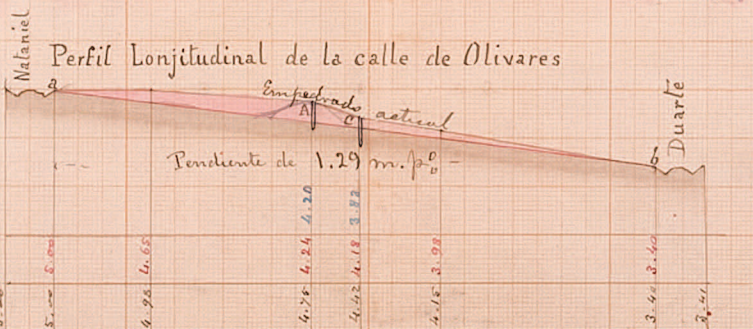 Nataniel
Perfil Lonjitudinal de la calle de Olivares
Duarte
a
Empedrado actual
A
C
b
Pendiente de 1.29 m. p%
4.20
3.82
5.00
4.65
4.24
4.18
3.98
3.40
4.95
4.75
4.42
4.15
3.40
3.41